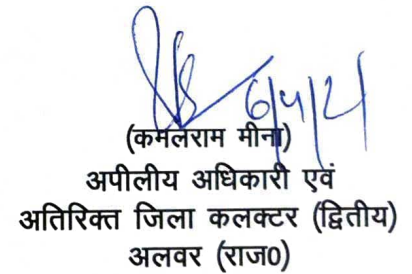 6/4/21
(कमलराम मीना)
अपीलीय अधिकारी एवं
अतिरिक्त जिला कलक्टर (द्वितीय)
अलवर (राज0)